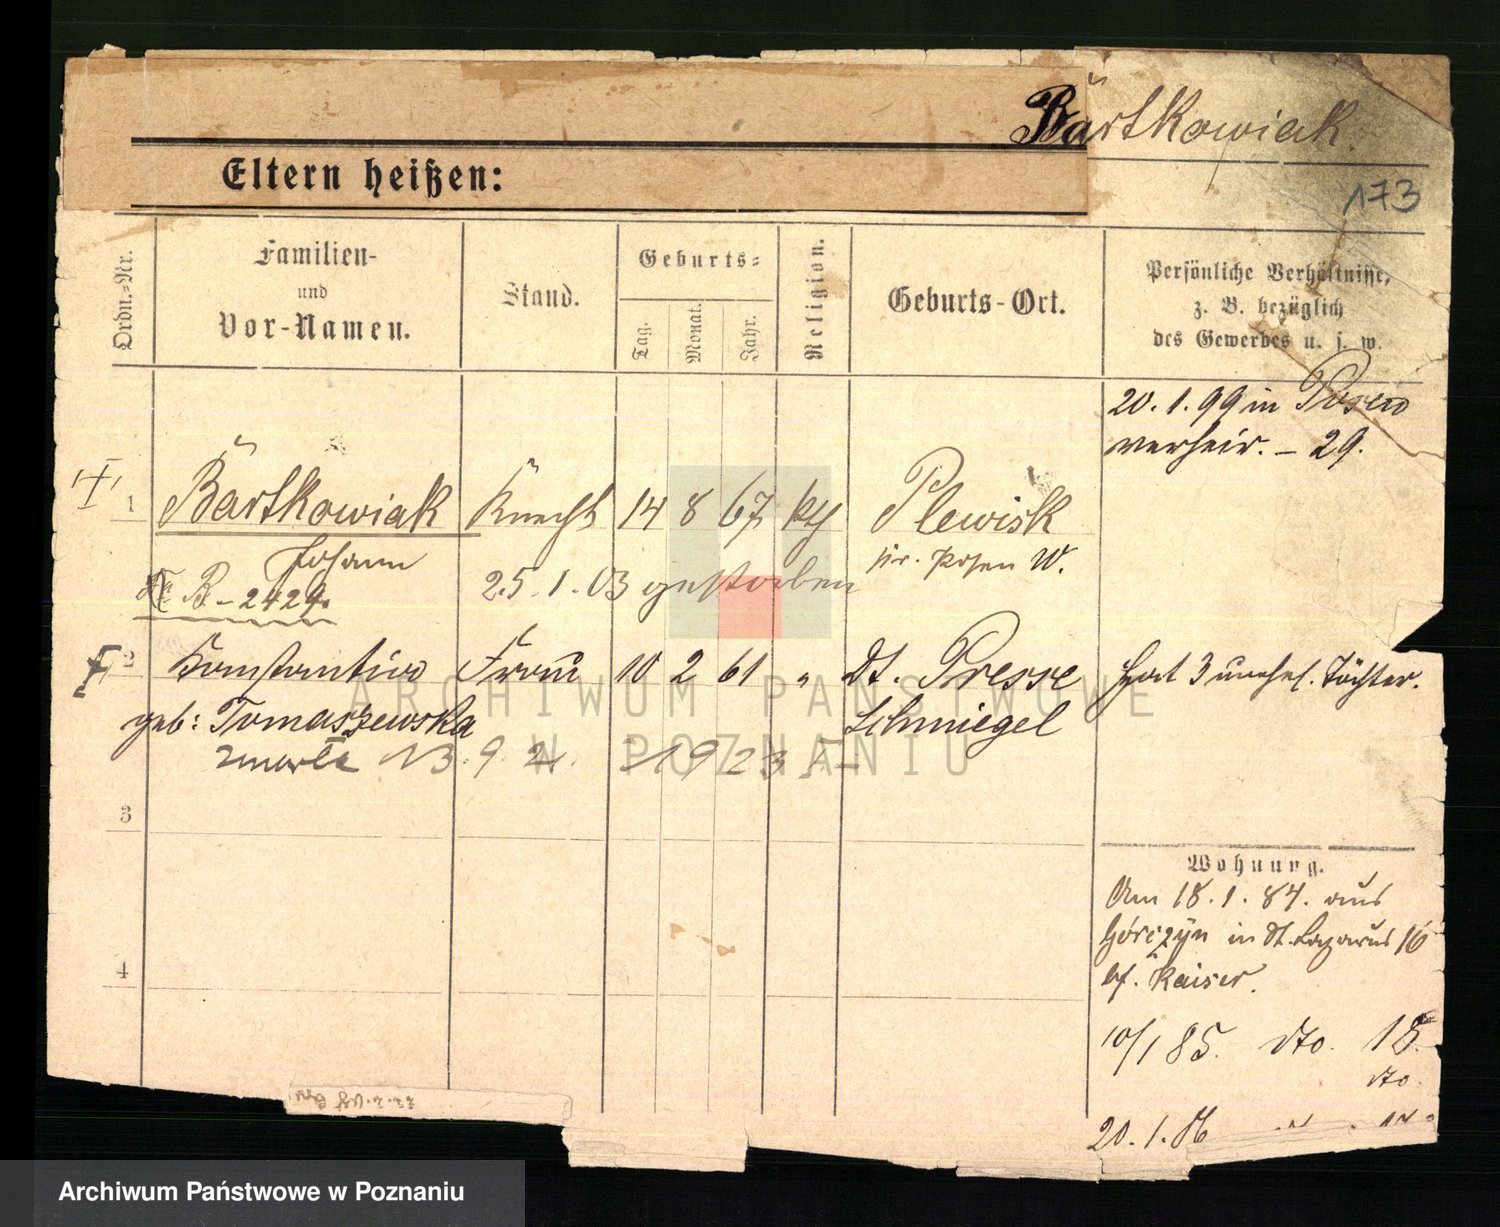 Bartkowiak
Eltern heißen:
173
Ordn.-Nr.
Familien-
und
Vor-Namen.
Stand.
Geburts-
Tag.
Monat.
Jahr.
Religion.
Geburts-Ort.
Persönliche Verhältnisse,
z. B. bezüglich
des Gewerbes u. s. w.
20.1.99 in Posen
verheir. – 29.
1 Bartkowiak Knecht 14 8 67 kth Plewisk
Johann
Kr. Posen W.
B. – 2429.
25.1.03 gestorben
2 Konstantine Frau 10 2 61 " Dt. Presse Hat 3 unehel. Töchter.
geb: Tomaszewska Schmiegel
zmarła 13.9.2 1923
3
Wohnung.
Am 18.1.84. aus
Górczyn in St. Lazarus 16
bf. Kaiser.
4
10/1 85. dto. 18.
dto.
20.1.86
ARCHIWUM PAŃSTWOWE
W POZNANIU
Archiwum Państwowe w Poznaniu